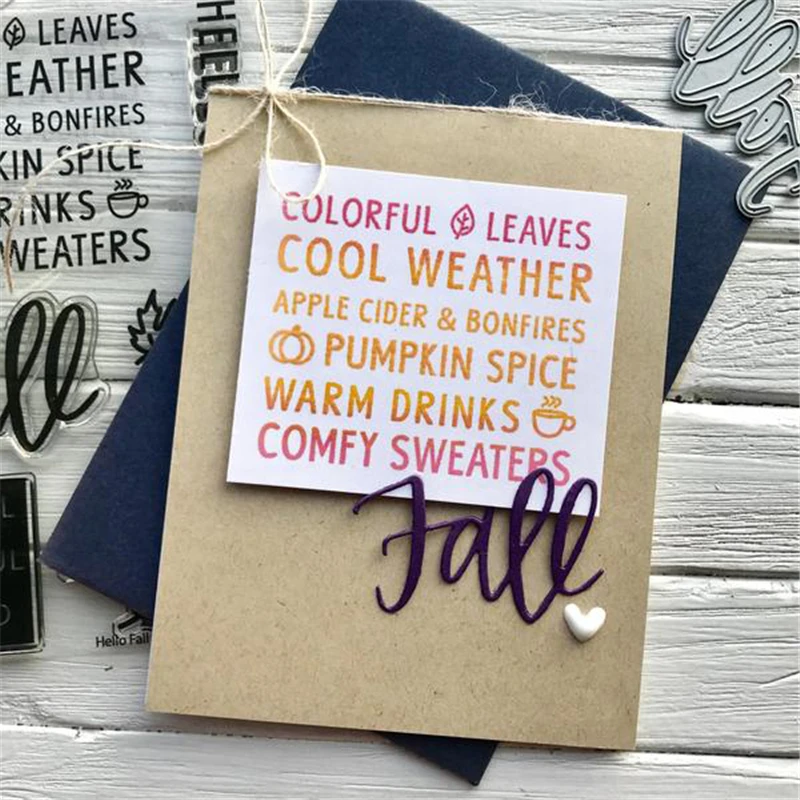 LEAVES
EATHER
& BONFIRES
KIN SPICE
RINKS
WEATERS
HELL
COLORFUL LEAVES
COOL WEATHER
APPLE CIDER & BONFIRES
PUMPKIN SPICE
WARM DRINKS
COMFY SWEATERS
Fall
Hello Fall